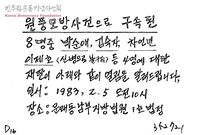 민주화운동기념사업회
Korea Democracy Foundation
원풍모방사건으로 구속된
8명중 박순애, 김숙자, 차언년
이제호 (신병으로 불구속) 등 4명에 대한
재판이 아래와 같이 열림을 알려드립니다.
일시: 1983. 2. 5 오전 10시
장소: 영등포남부지방법원 1호법정
D16